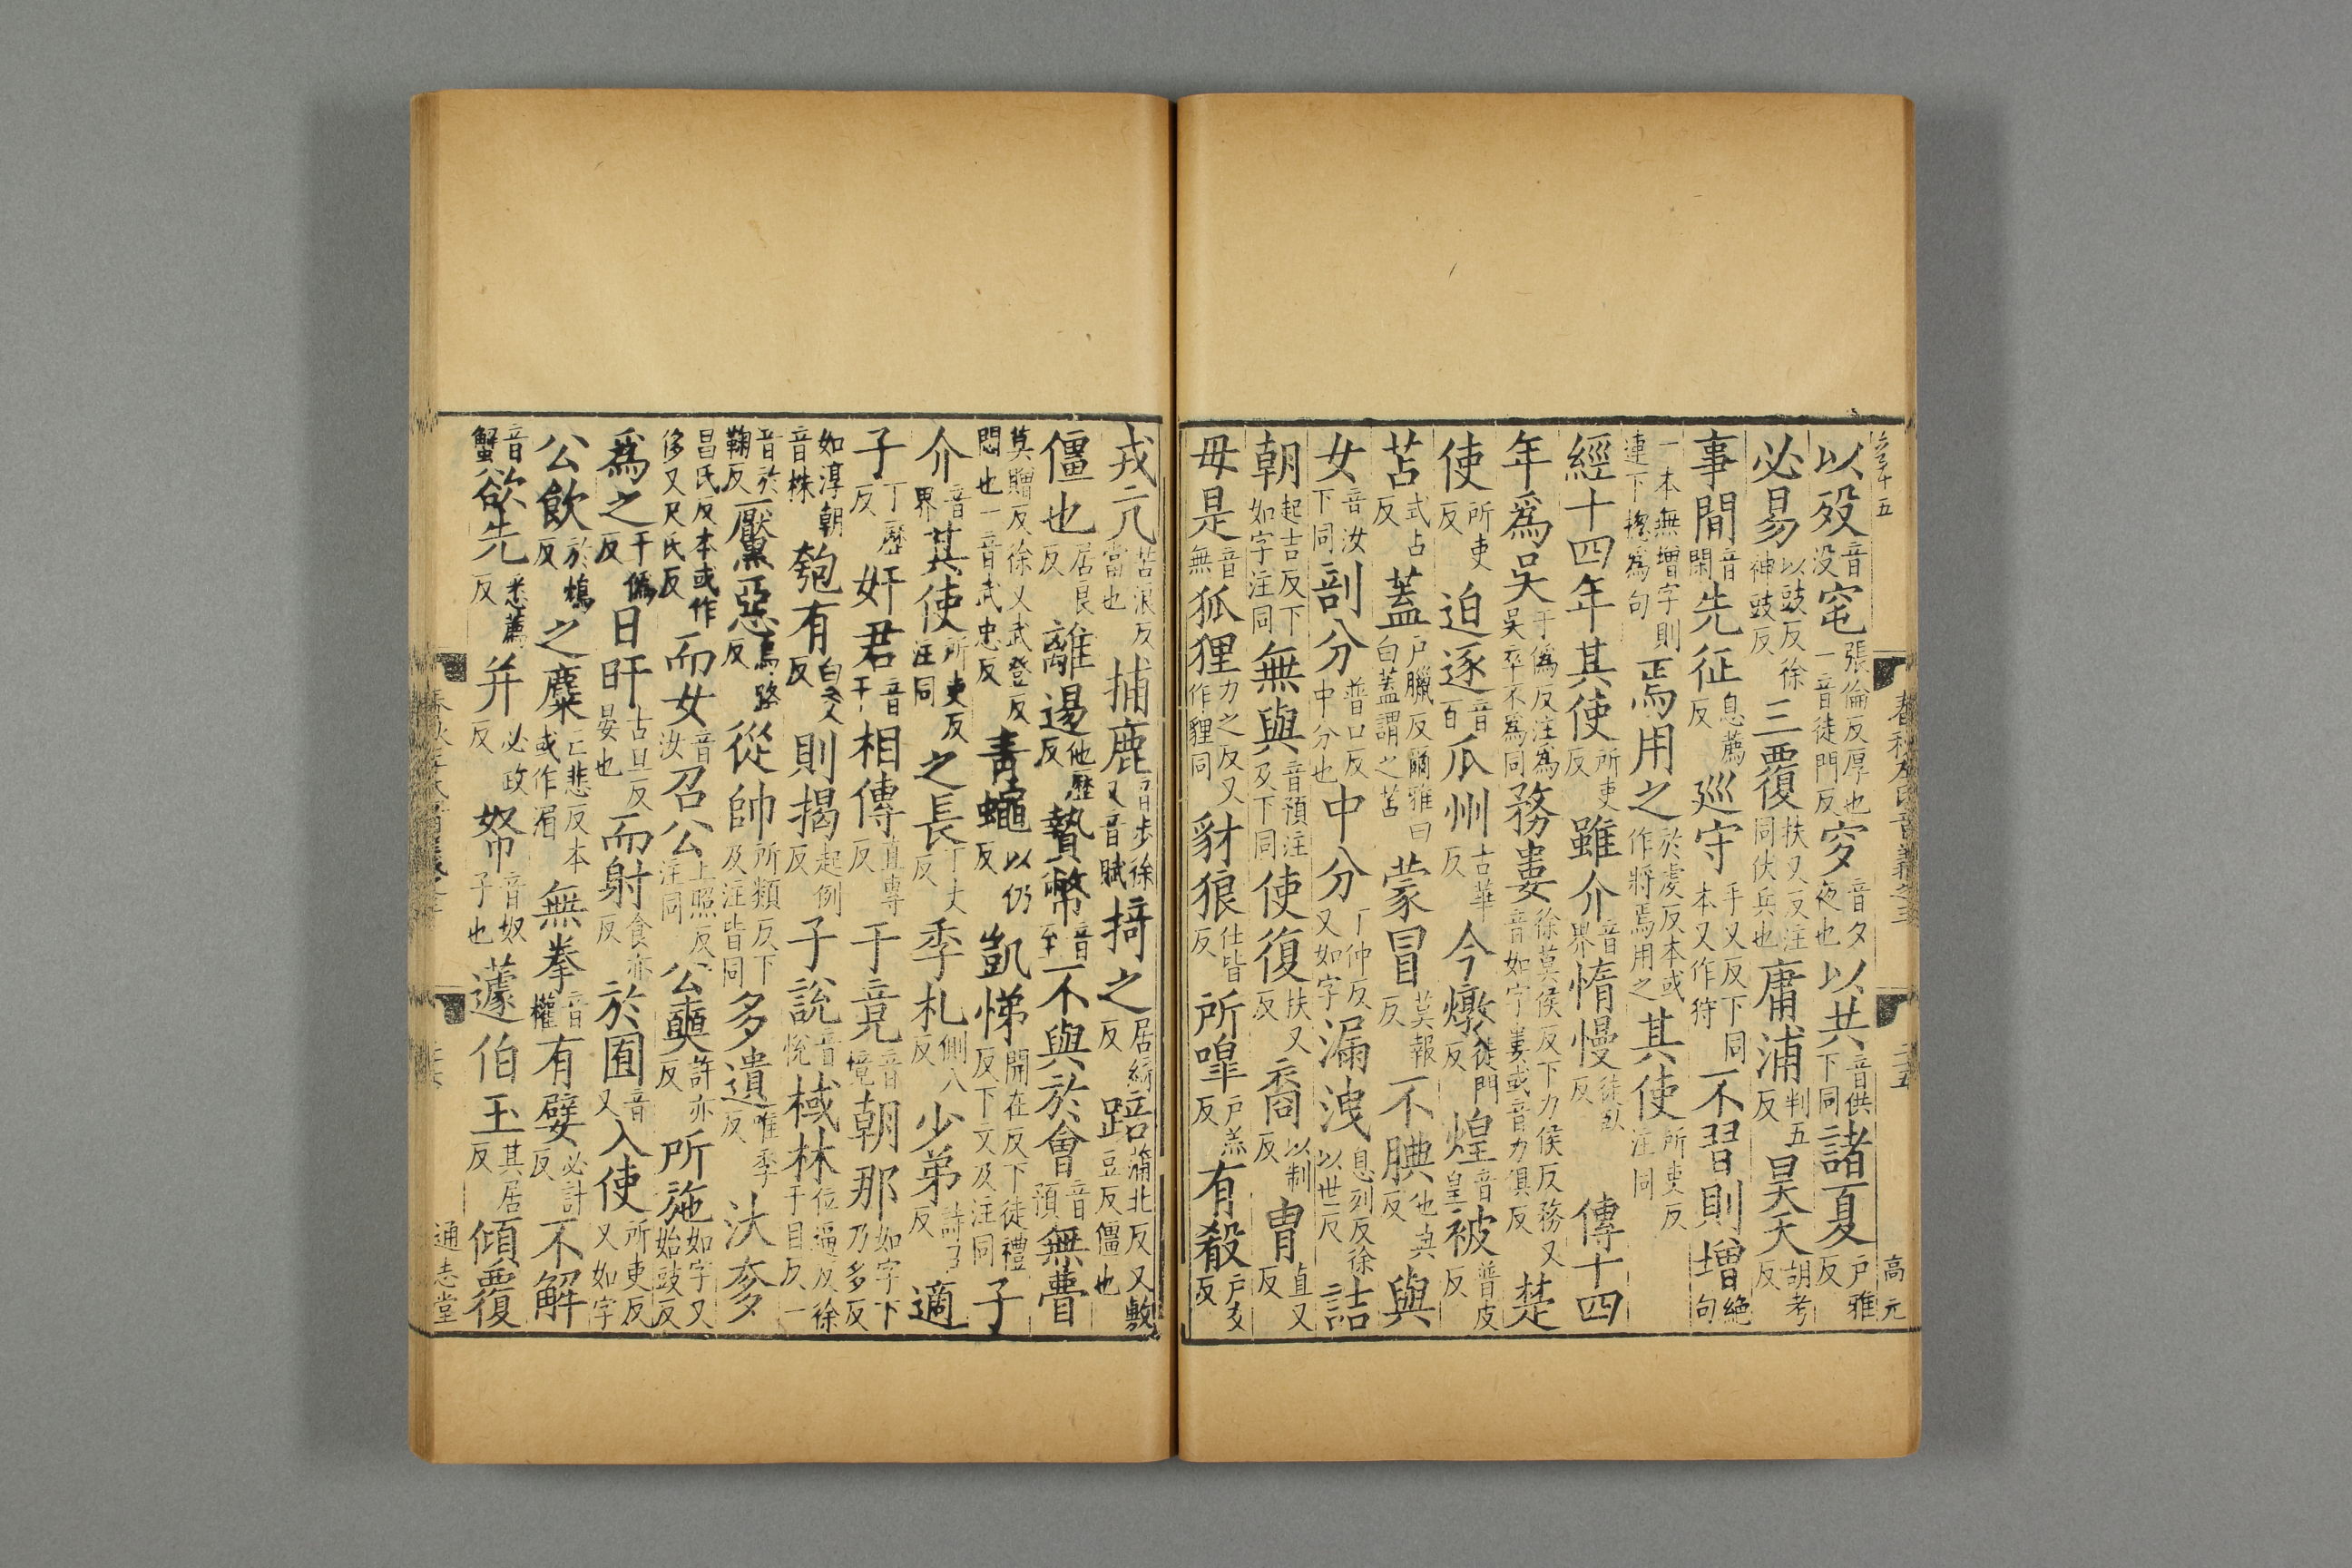 以歿音没窀張倫反厚也一音徒門反穸音夕夜也以共音供下同諸夏戶雅反
必易以豉反徐神豉反三覆扶又反注同伏兵也庸浦判五反昊天胡考反
事間音閑先征息薦反巡守手又反下同本又作狩不習則增絕句
一本無增字則連下揔爲句焉用之於虔反本或作將焉用之其使所吏反注同
經十四年其使所吏反雖介音界惰慢徒臥反傳十四
年爲吳于僞反注爲吳卒不爲同務婁徐莫侯反下力侯反務又音如字婁或音力俱反楚
使所吏反迫逐音百瓜州古華反今燉徒門反煌音皇被普皮反
苫式占反蓋戶臘反爾雅曰白蓋謂之苫蒙冒莫報反不腆他典反與
女音汝下同剖分普口反中分也中分丁仲反又如字漏洩息列反徐以世反詰
朝起吉反下如字注同無與音預注及下同使復扶又反裔以制反冑直又反
毋是音無狐狸力之反又作貍同豺狼仕皆反所嘷戶羔反有殽戶交反
戎亢苦浪反當也捕鹿音步徐又音賦掎之居綺反踣蒲北反又敷豆反僵也
僵也居良反離逷他歷反贄幣音至不與於會音預無瞢
莫贈反徐又武登反悶也一音武忠反青蠅以仍反凱悌開在反下徒禮反下文及注同子
介音界其使所吏反注同之長丁丈反季札側八反少弟詩召反適
子丁歷反奸君音干相傳直專反干竟音境朝那如字下乃多反
如淳朝音株匏有白交反則揭起例反子說音悅棫林位逼反徐于目反一
音於鞠反黶惡烏路反從帥所類反下及注皆同多遺唯季反汰奓
昌氏反本或作侈又尺氏反而女音汝召公上照反注同公奭許亦反所施如字又始豉反
爲之于僞反日旰古旦反晏也而射食亦反於囿音又入使所吏反又如字
公飲於鴆反之麋亡悲反本或作湄無拳音權有嬖必計反不解
音蟹欲先悉薦反并必政反帑音奴子也蘧伯玉其居反傾覆
通志堂